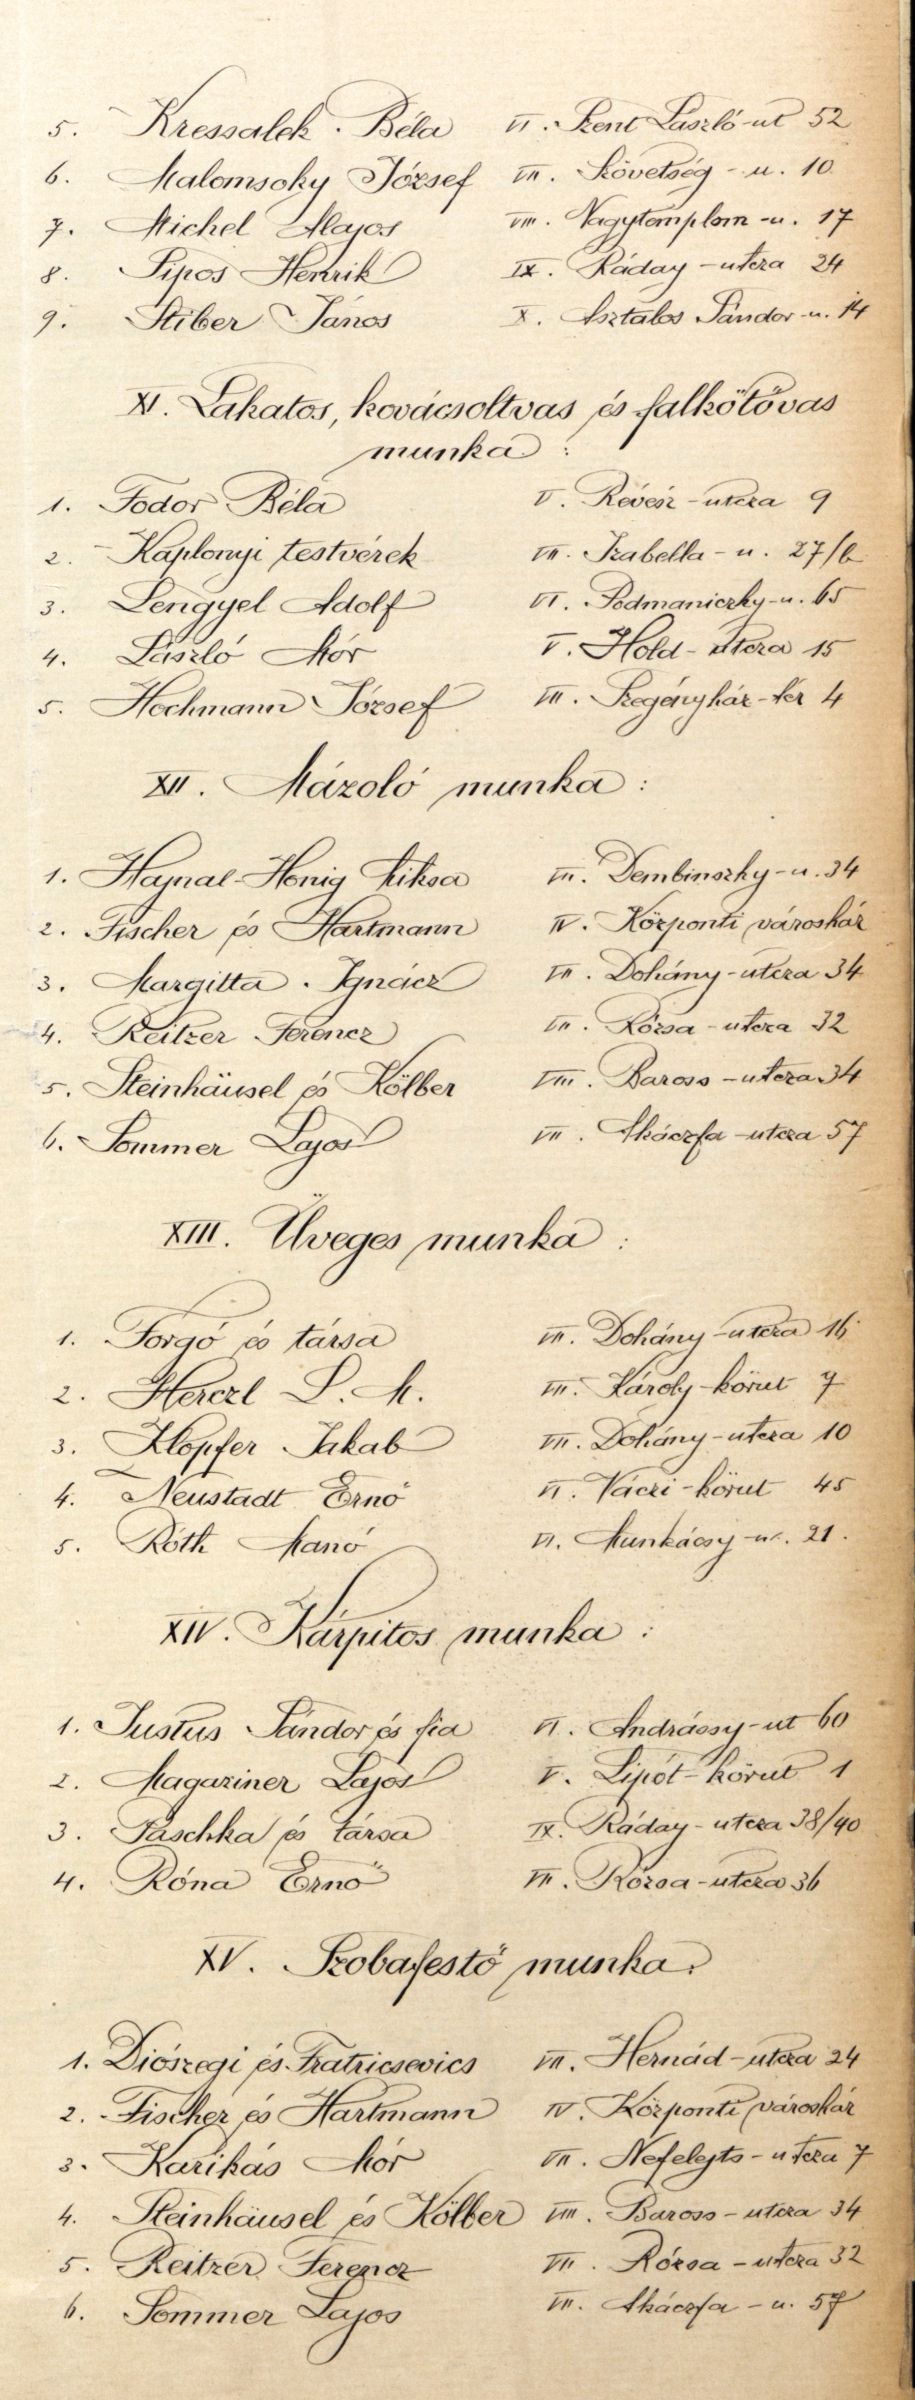 5. Kressalek Béla VI. Szent László-ut 52
6. Malomsoky József VII. Szövetség-u. 10
7. Michel Alajos VIII. Nagytemplom-u. 17
8. Sipos Henrik IX. Ráday-utcza 24
9. Stiber János X. Asztalos Sándor-u. 14
XI. Lakatos, kovácsoltvas és falkötővas
munka :
1. Fodor Béla V. Révész-utcza 9
2. Kaplonyi testvérek VII. Izabella-u. 27/b
3. Lengyel Adolf VI. Podmaniczky-u. 65
4. László Mór V. Hold-utcza 15
5. Hochmann József VII. Szegényház-tér 4
XII. Mázoló munka :
1. Hajnal-Honig Miksa VII. Dembinszky-u. 34
2. Fischer és Hartmann IV. Központi városház
3. Margitta Ignácz VII. Dohány-utcza 34
4. Reitzer Ferencz VII. Rózsa-utcza 32
5. Steinhäusel és Kölber VIII. Baross-utcza 34
6. Sommer Lajos VII. Akáczfa-utcza 57
XIII. Üveges munka :
1. Forgó és társa VII. Dohány-utcza 16
2. Herczl S. M. VII. Károly-körut 7
3. Klopfer Jakab VII. Dohány-utcza 10
4. Neustadt Ernő VI. Váczi-körut 45
5. Róth Manó VI. Munkácsy-u. 21.
XIV. Kárpitos munka :
1. Justus Sándor és fia VI. Andrássy-ut 60
2. Magaziner Lajos V. Lipót-körut 1
3. Paschka és társa IX. Ráday-utcza 38/40
4. Róna Ernő VII. Rózsa-utcza 36
XV. Szobafestő munka.
1. Diószegi és Fratricsevics VII. Hernád-utcza 24
2. Fischer és Hartmann IV. Központi városház
3. Karikás Mór VII. Nefelejts-utcza 7
4. Steinhäusel és Kölber VIII. Baross-utcza 34
5. Reitzer Ferencz VII. Rózsa-utcza 32
6. Sommer Lajos VII. Akáczfa-u. 57